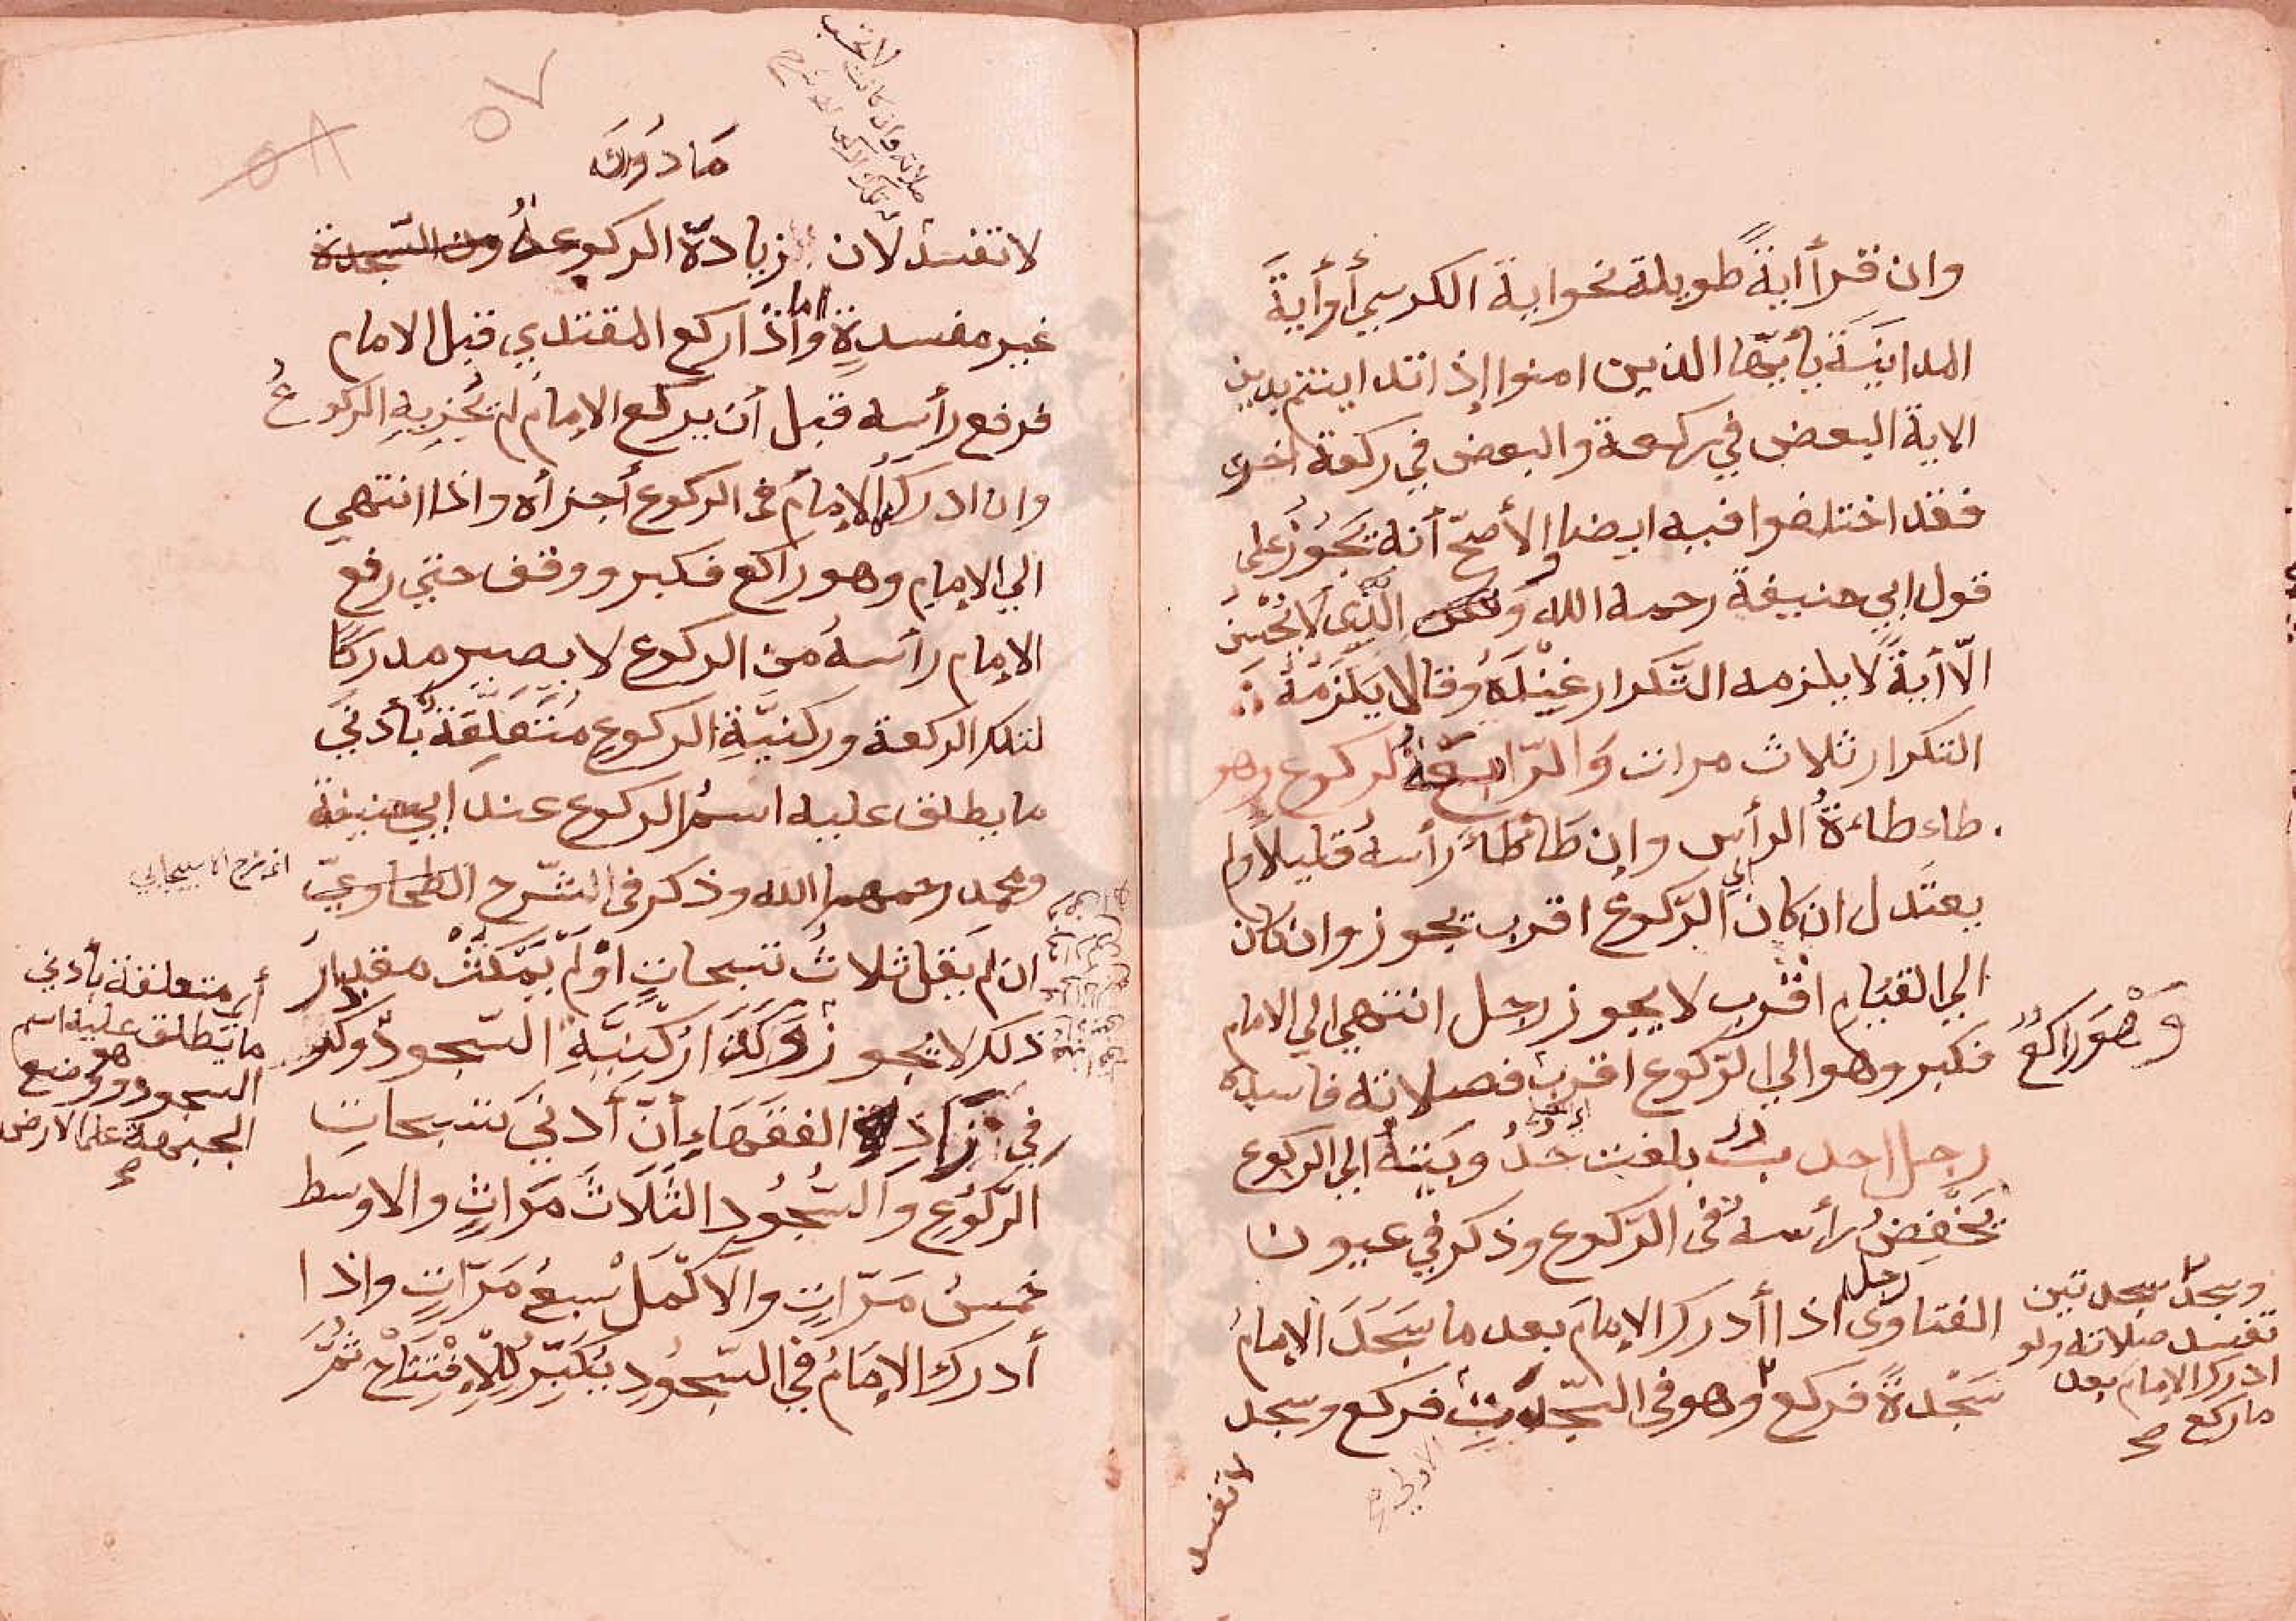 وان قرأ اية طويلة نحو اية الكرسي أو أية
المداينة يأيها الذين امنوا إذا تداينتم بدين
الاية البعض في ركعة والبعض في ركعة أخرى
فقد اختلفوا فيه ايضا والأصحّ أنه يجوز على
قول ابي حنيفة رحمه الله و الذي لا يحسن
الّا أية لا يلزمه التكرار عنده وقالا يلزمه
التكرار ثلاث مرات والرّابعة الركوع وهو
طاءطاءة الرأس وإن طأطأ رأسه قليلا ولم
يعتدل ان كان الي الرّكوع اقرب يجوز وان كان
الي القيام اقرب لا يجوز رجل انتهي الي الامام
وهو راكع
فكبر وهو الي الرّكوع اقرب فصلاته فاسدة
رجل احدب بلغت حدوبته الي الركوع
يخفض رأسه في الرّكوع وذكر في عيون
الفتاوى رجل اذا أدرك الإمام بعد ما سجد الإمام
سجدة فركع وهو في السّجدة فركع وسجد
وسجد سجدتين
تفسد صلاته ولو
ادرك الإمام بعد
ما ركع صح
لا تفسد
ما دورك
لا تفسد لأن زيادة الركوع دون السّجدة
غير مفسدة واما اذا ركع المقتدي قبل الامام
فرفع رأسه قبل أن يركع الإمام لم يجزيه الركوع
وان ادركه الإمام في الركوع أجزأه واذا انتهي
الي الإمام وهو راكع فكبر ووقف حتي رفع
الإمام رأسه من الركوع لا يصير مدركا
لتلك الركعة وركنيّة الركوع متعلقة بأدني
ما يطلق عليه اسم الركوع عند ابي حنيفة
ومحمد رحمهما الله وذكر في الشّرح الطحاويّ
ان لم يقل ثلاث تسبحات او لم يمكث مقدار
ذلك لا يجوز وكذا ركنيّة السّجود وذكر
في زاد الفقهاء أنّ أدني تسبيحات
الرّكوع والسّجود الثلاث مرّات والاوسط
خمس مرّات والاكمل سبع مرّات واذا
أدرك الإمام في السّجود يكبّر للافتتاح ثمّ
أي متعلقة بأدني
ما يطلق عليه اسم
السجود وهو وضع
الجبهة علي الارض
صح
٥٧
٥٨